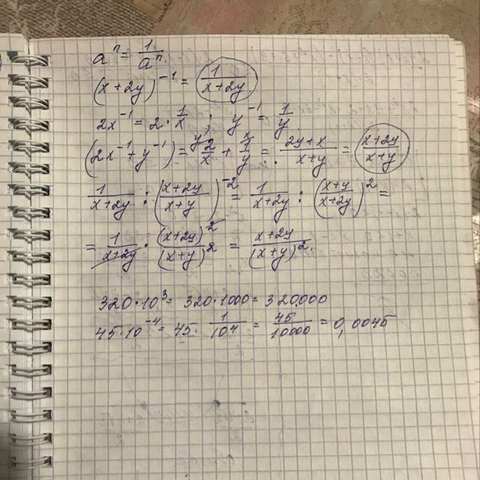 aⁿ = 1/aⁿ.
(x+2y)⁻¹ = 1/(x+2y)
2x⁻¹ = 2 · 1/x ; y⁻¹ = 1/y
(2x⁻¹ + y⁻¹) = ʸ⁾2/x + ˣ⁾1/y = (2y+x)/(x+y) = (x+2y)/(x+y)
1/(x+2y) : ((x+2y)/(x+y))⁻² = 1/(x+2y) : ((x+y)/(x+2y))² =
= 1/(x+2y) · (x+2y)²/(x+y)² = (x+2y)/(x+y)².
320·10³ = 320·1000 = 320.000
45·10⁻⁴ = 45 · 1/10⁴ = 45/10000 = 0,0045